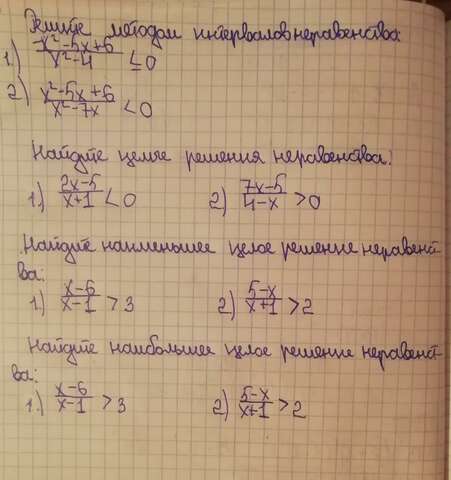 Решите методом интервалов неравенства:
1.) (-x²-5x+6)/(x²-4) ≤ 0
2) (x²-5x+6)/(x²-7x) < 0
Найдите целые решения неравенства:
1.) (2x-5)/(x+1) < 0 2) (7x-5)/(4-x) > 0
Найдите наименьшее целое решение неравенст-
ва:
1) (x-6)/(x-1) > 3 2) (5-x)/(x+1) > 2
Найдите наибольшее целое решение неравенст-
ва:
1.) (x-6)/(x-1) > 3 2) (5-x)/(x+1) > 2